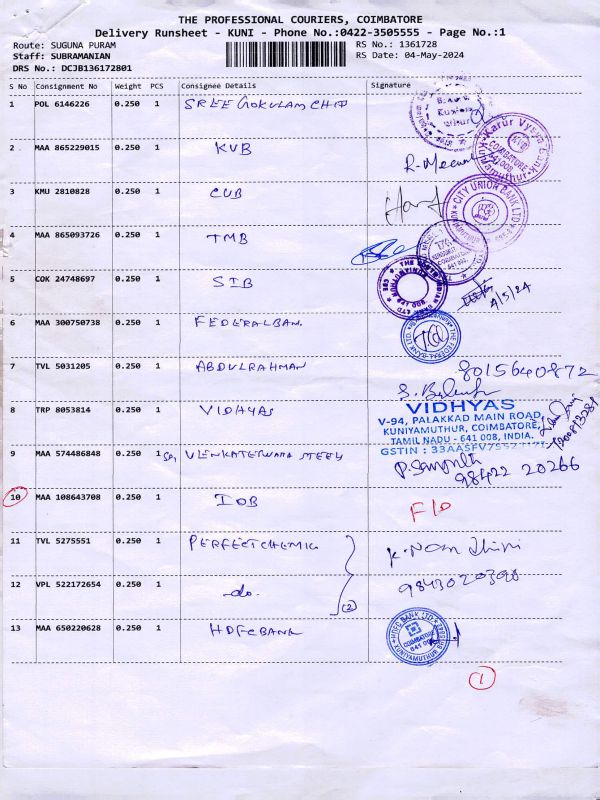 THE PROFESSIONAL COURIERS, COIMBATORE
Delivery Runsheet - KUNI - Phone No.:0422-3505555 - Page No.:1
Route: SUGUNA PURAM
RS No.: 1361728
Staff: SUBRAMANIAN
RS Date: 04-May-2024
DRS No.: DCJB136172801
S No Consignment No Weight PCS Consignee Details Signature
1 POL 6146226 0.250 1 SREE GOKULAM CHIT
2 MAA 865229015 0.250 1 KVB
Karur Vysya Bank
COIMBATORE
641 008
R. Meena
3 KMU 2810828 0.250 1 CUB
CITY UNION BANK LTD
4 MAA 865093726 0.250 1 TMB
5 COK 24748697 0.250 1 SIB
4/5/24
6 MAA 300750738 0.250 1 FEDERAL BAN.
THE FEDERAL BANK LTD.
7 TVL 5031205 0.250 1 ABDULRAHMAN
8015640872
8 TRP 8053814 0.250 1 VIDHYAS
VIDHYAS
V-94, PALAKKAD MAIN ROAD,
KUNIYAMUTHUR, COIMBATORE,
TAMIL NADU - 641 008, INDIA.
GSTIN :
9 MAA 574486848 0.250 1 VENKATESWARA STEEL
98422 20266
10 MAA 108643708 0.250 1 IOB
F/O
11 TVL 5275551 0.250 1 PERFECT CHEMIC
12 VPL 522172654 0.250 1 -do-
(2)
9843020390
13 MAA 650220628 0.250 1 HDFC BANK
HDFC BANK LTD
COIMBATORE
641 008
KUNIYAMUTHUR
1